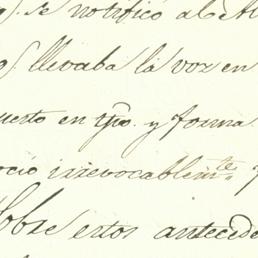 ). se notificó al
) llevaba la voz en
uesto en tpo. y forma
oció irrevocablemte.
Sobre estos antecede